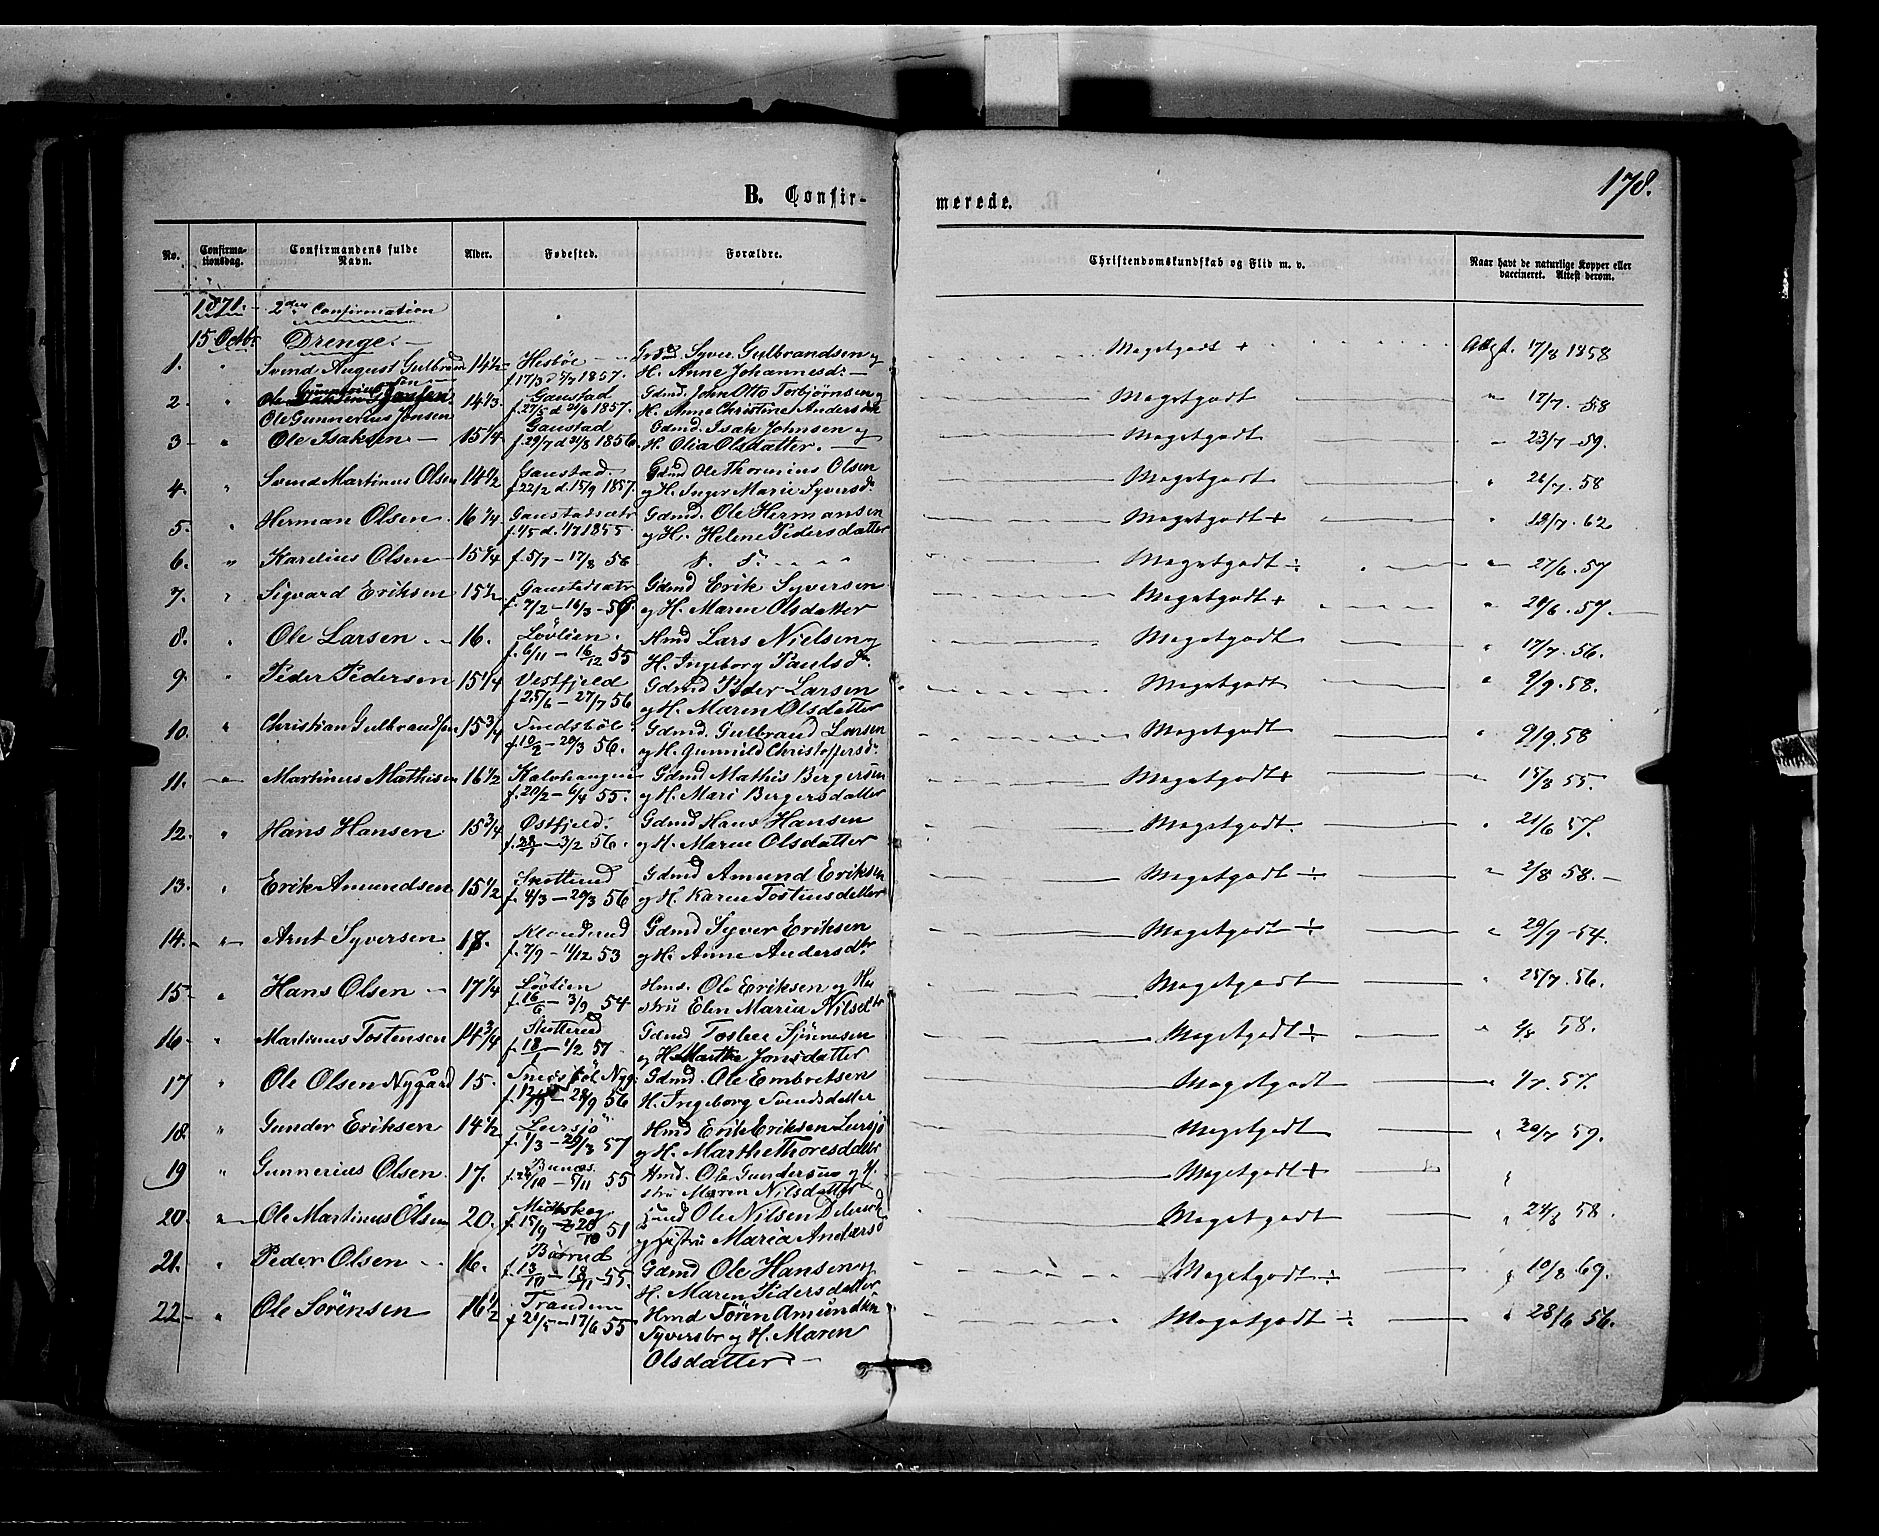 178.
B. Confir-
merede.
No.
Confirma-
tionsdag.
Confirmandens fulde
Navn.
Alder.
Fødested.
Forældre.
Christendomskundskab og Flid m. v.
Naar havt de naturlige Kopper eller
vaccineret. Attest derom.
1871. 2den Confirmation
15 Octbr Drenge.
1. " Svend August Gulbrand 14½ Hesböe Grdmd Syver Gulbrandsen og Megetgodt + Attest. 17/8 1858
sen f. 17/3 d 1857. H. Anne Johannesd.
2. " 14⅓ Gaustad Gdmd. John Otto Torbjörnsen og Megetgodt " 17/7 58
Ole Gunnerius Jonsen f. 27/5 d 21/6 1857. H. Anne Christine Andersdtr
3 " Ole Isaksen 15¼ Gaustad Gdmd. Isak Johnsen og Megetgodt " 23/7 59.
f 29/7 d 31/8 1856. H. Olia Olsdatter.
4. " Svend Martinus Olsen 14½ Gaustad. Gdmd Ole Thorinius Olsen Megetgodt " 26/7. 58
f 22/2 d. 15/9 1857. og H. Inger Marie Syversd.
5. " Herman Olsen 16¼ Gaustadsætr Gdmd. Ole Hermansen Megetgodt + " 19/7. 62
f. 1/5 d. 1/7 1855. og H. Helene Pedersdatter
6. " Karelius Olsen 15¼ f. 5/7 - 17/8 56 Megetgodt ÷ " 27/6. 57
7. " Sigvard Eriksen 15½ Gaustadsætr Gdmd Erik Syversen Megetgodt + " 20/6. 57.
f. 7/2 - 16/3 - 56. og H. Maren Olsdatter
8. " Ole Larsen 16. Lövlien. Hmd Lars Nielsen og Megetgodt " 17/7. 56.
f. 6/11 - 16/12 55 H. Ingeborg Paulsd.
9. " Peder Pedersen 15¼ Vestfjeld Gdmd Peder Larsen Megetgodt " 9/9. 58.
f 25/6 - 27/7 56 og H. Maren Olsdatter
10. " Christian Gulbrandsen 15¾ Snedsböl Gdmd. Gulbrand Larsen Megetgodt " 9/9. 58
f. 10/2 - 20/3 56. og H. Gunnild Christoffersd.
11. " Martinus Mathisen 16½ Kalvhaugen Gdmd Mathis Bergersen Megetgodt + " 15/8 55.
f. 20/2 - 6/4 55. og H. Mari Bergersdatter
12. " Hans Hansen 15¾ Østfjeld. Gdmd Hans Hansen Megetgodt. " 21/6 57.
f. 3/2 56. og H. Maren Olsdatter
13. " Erik Amundsen 15½ Gdmd Amund Eriksen Megetgodt ÷ " 2/8 58.
f. 4/3 - 20/3 56 og H. Karen Tostensdatter
14. " Arnt Syversen 17. Klanderud Gdmd Syver Eriksen Megetgodt ÷ " 29/9 - 54.
f. 7/9 - 11/12 53 og H. Anne Andersdtr
15 " Hans Olsen 17¼ Lövlien Hmd. Ole Eriksen og Hu Megetgodt " 25/7. 56.
f. 16/6 - 3/9 54 stru Elen Maria Nilsdtr
16 " Martinus Tostensen 14¾ Gdmd Megetgodt ÷ " 2/8 58.
f. 18/1 - 1/2 57 og H. Marthe Jonsdatter
17 " Ole Olsen Nygård 15. Snedsböl Nyg: Gdmd. Ole Embretsen Megetgodt 57.
28/9 56 H. Ingeborg Svendsdatter
18. " Gunder Eriksen 14½ Lursjö Hmd Erik Eriksen Lursjö Megetgodt " 20/7 59.
f. 1/3 - 29/3 57 og H. Marthe Thoresdatter
19 " Gunnerius Olsen 17. Bunæs Hmd. Ole Gundersen og H. Megetgodt + "
f. 24/10 - 5/11 55 stru Maren Nilsdatter
20. " Ole Martinus Olsen 20. Midtskog Ole Nilsen Megetgodt " 24/8 58.
f. 15/9 20/10 51 og Hustru Maria Andersd
21. " Peder Olsen 16. Börrud Gdmd Ole Hansen og Megetgodt ÷ " 10/8 69.
f. 13/10 - 18/11 - 55. H. Maren Pedersdatter
22. " Ole Sörensen 16½ Trandum Hmd Sören Amundsen Megetgodt ÷ " 28/6 56.
f 21/5 - 17/6 55 Syversbr og H. Maren
Olsdatter.